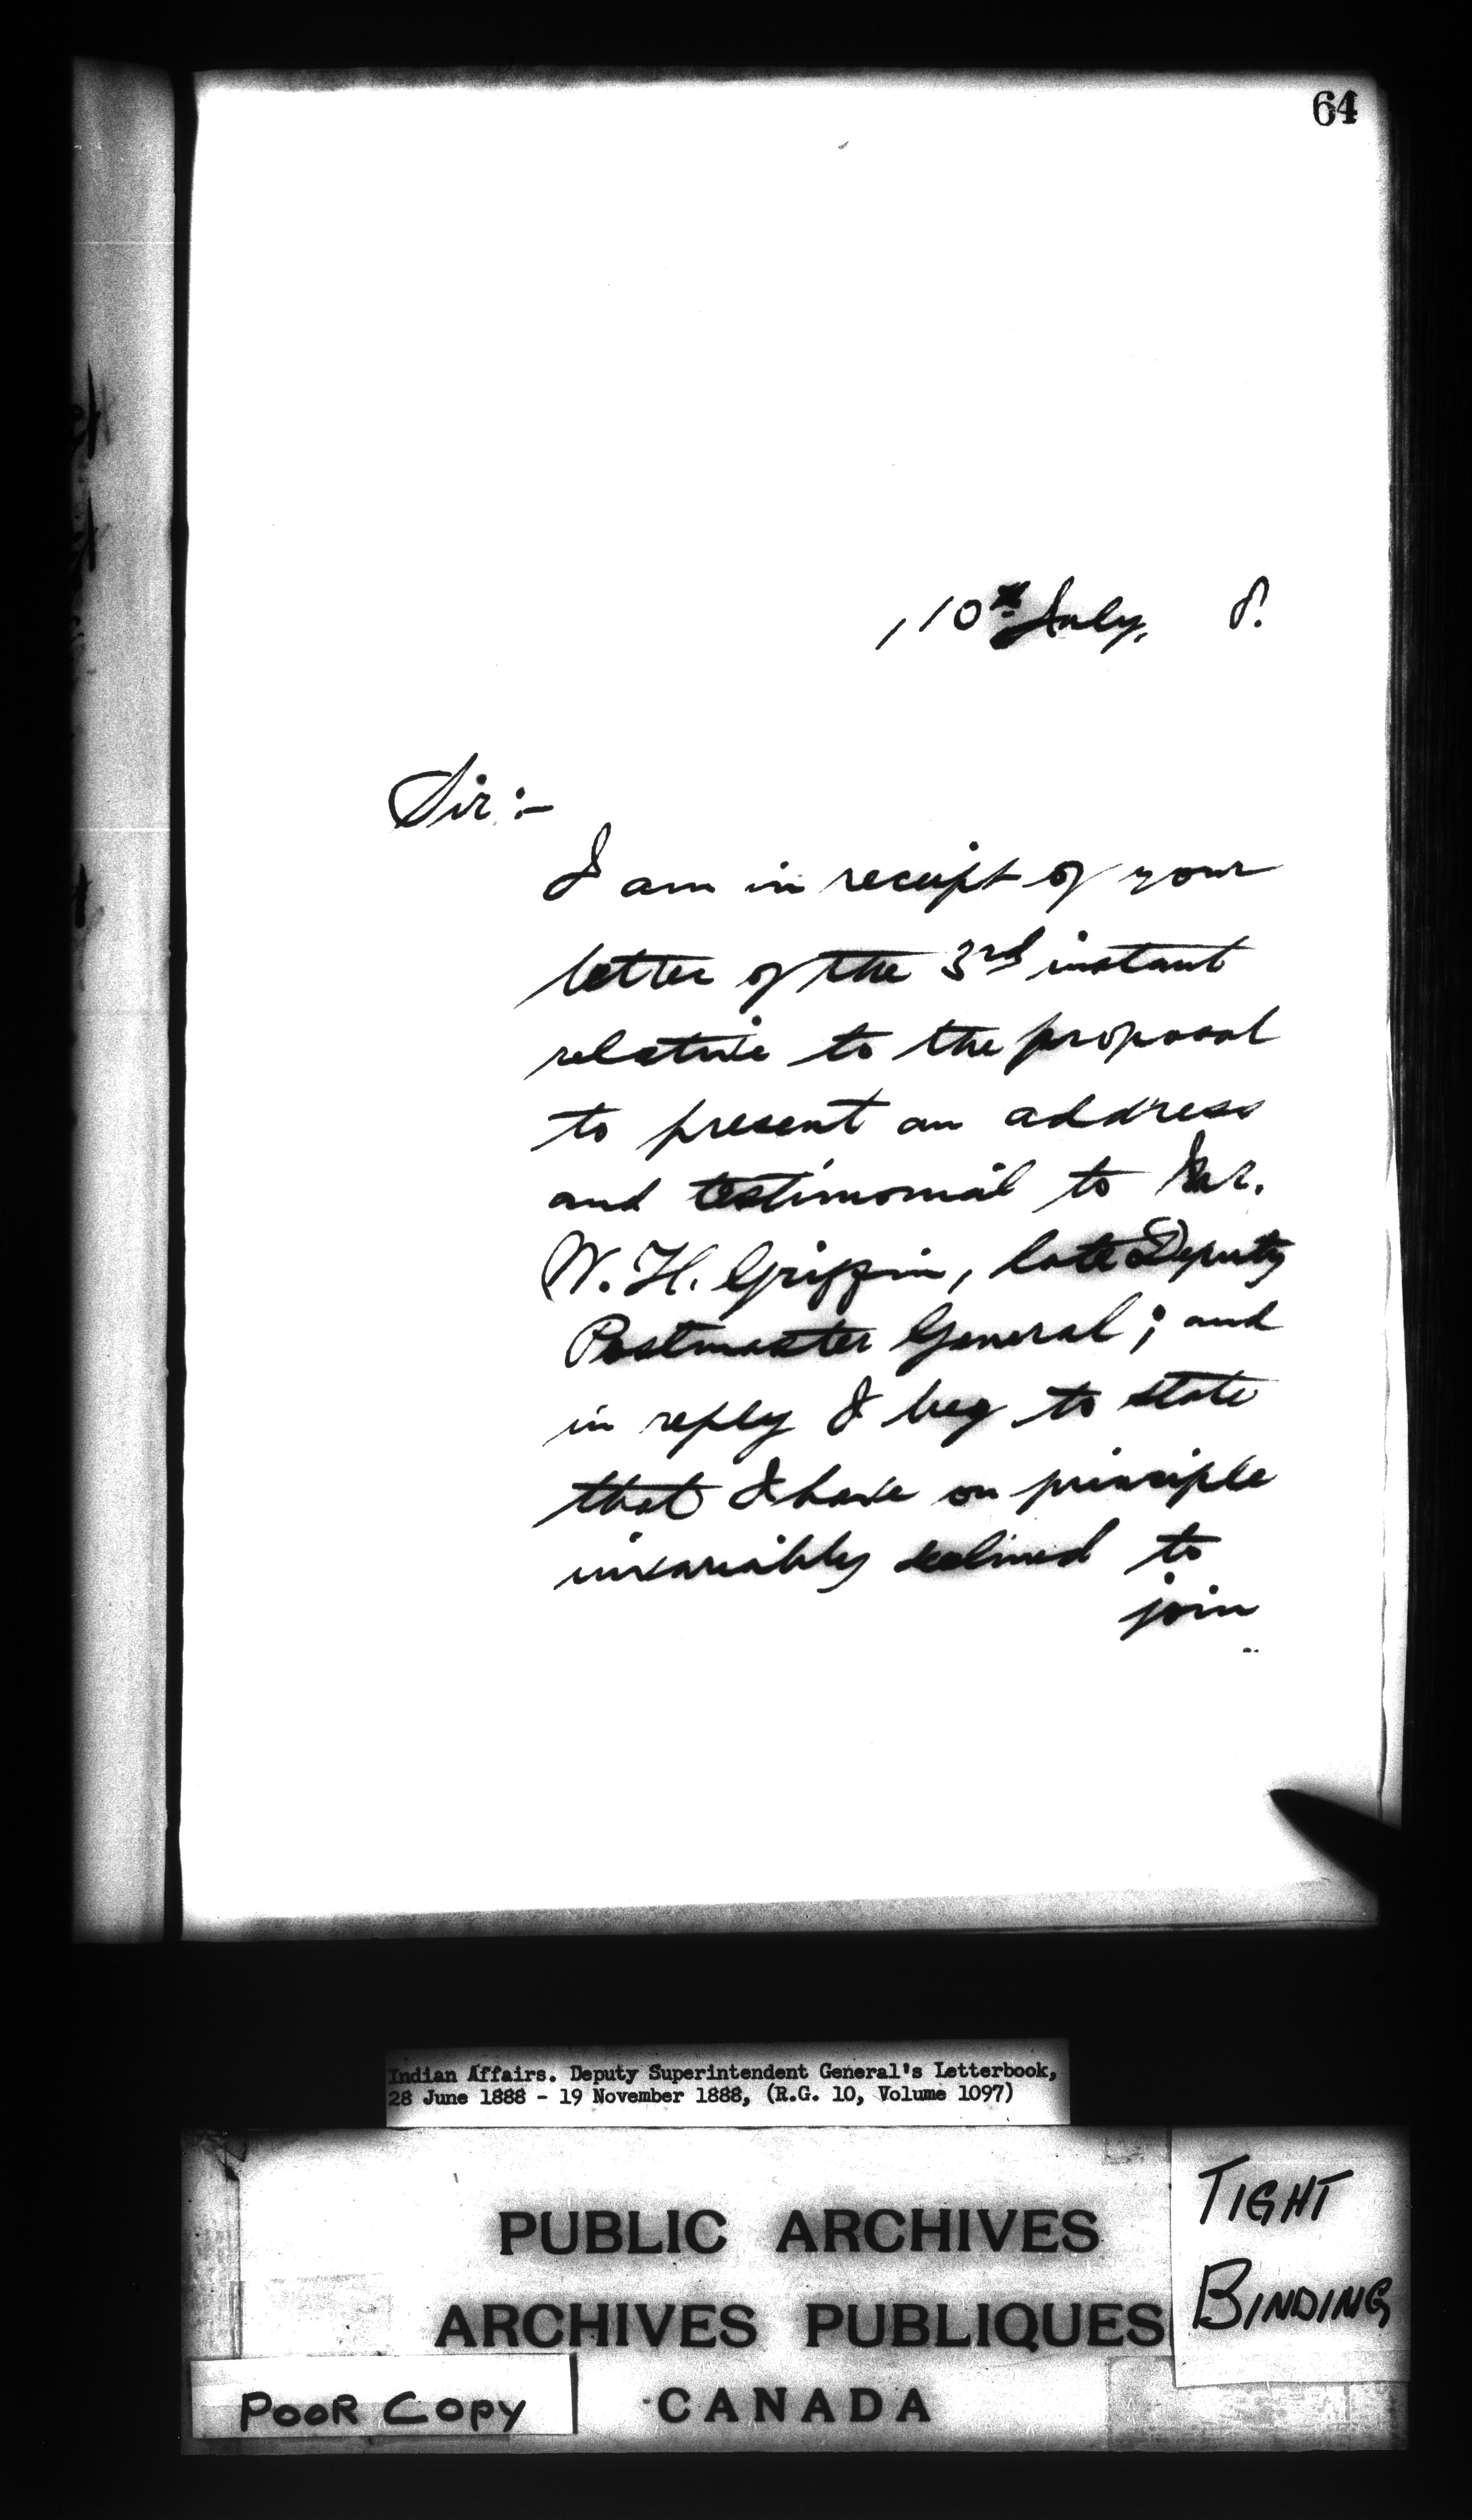 64
, 10th July, 8.
Sir :-
I am in receipt of your
letter of the 3rd instant
relative to the proposal
to present an address
and testimonial to Mr.
W. H. Griffin, late Deputy
Postmaster General; and
in reply I beg to state
that I have on principle
invariably declined to
join
Indian Affairs. Deputy Superintendent General's Letterbook,
28 June 1888 - 19 November 1888, (R.G. 10, Volume 1097)
PUBLIC ARCHIVES
ARCHIVES PUBLIQUES
CANADA
TIGHT
BINDING
POOR COPY